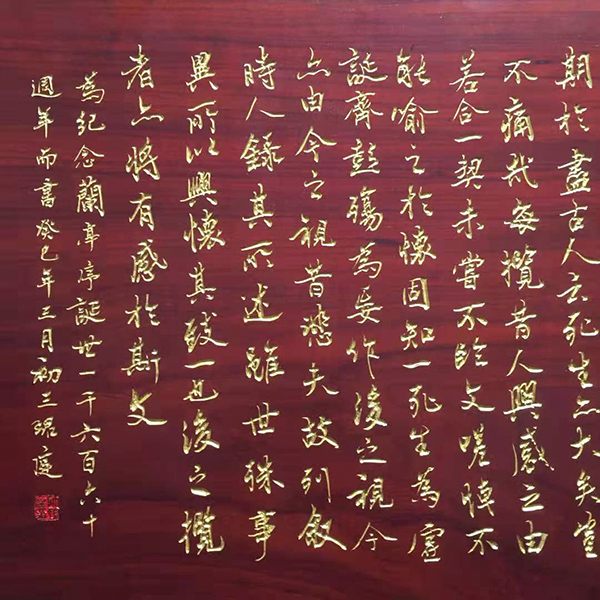 期於盡古人云死生亦大矣豈
不痛哉每攬昔人興感之由
若合一契未嘗不臨文嗟悼不
能喻之於懷固知一死生為虛
誕齊彭殤為妄作後之視今
亦由今之視昔悲夫故列敘
時人錄其所述雖世殊事
異所以興懷其致一也後之攬
者亦將有感於斯文
為紀念蘭亭序誕世一千六百六十
週年而書癸巳年三月初三